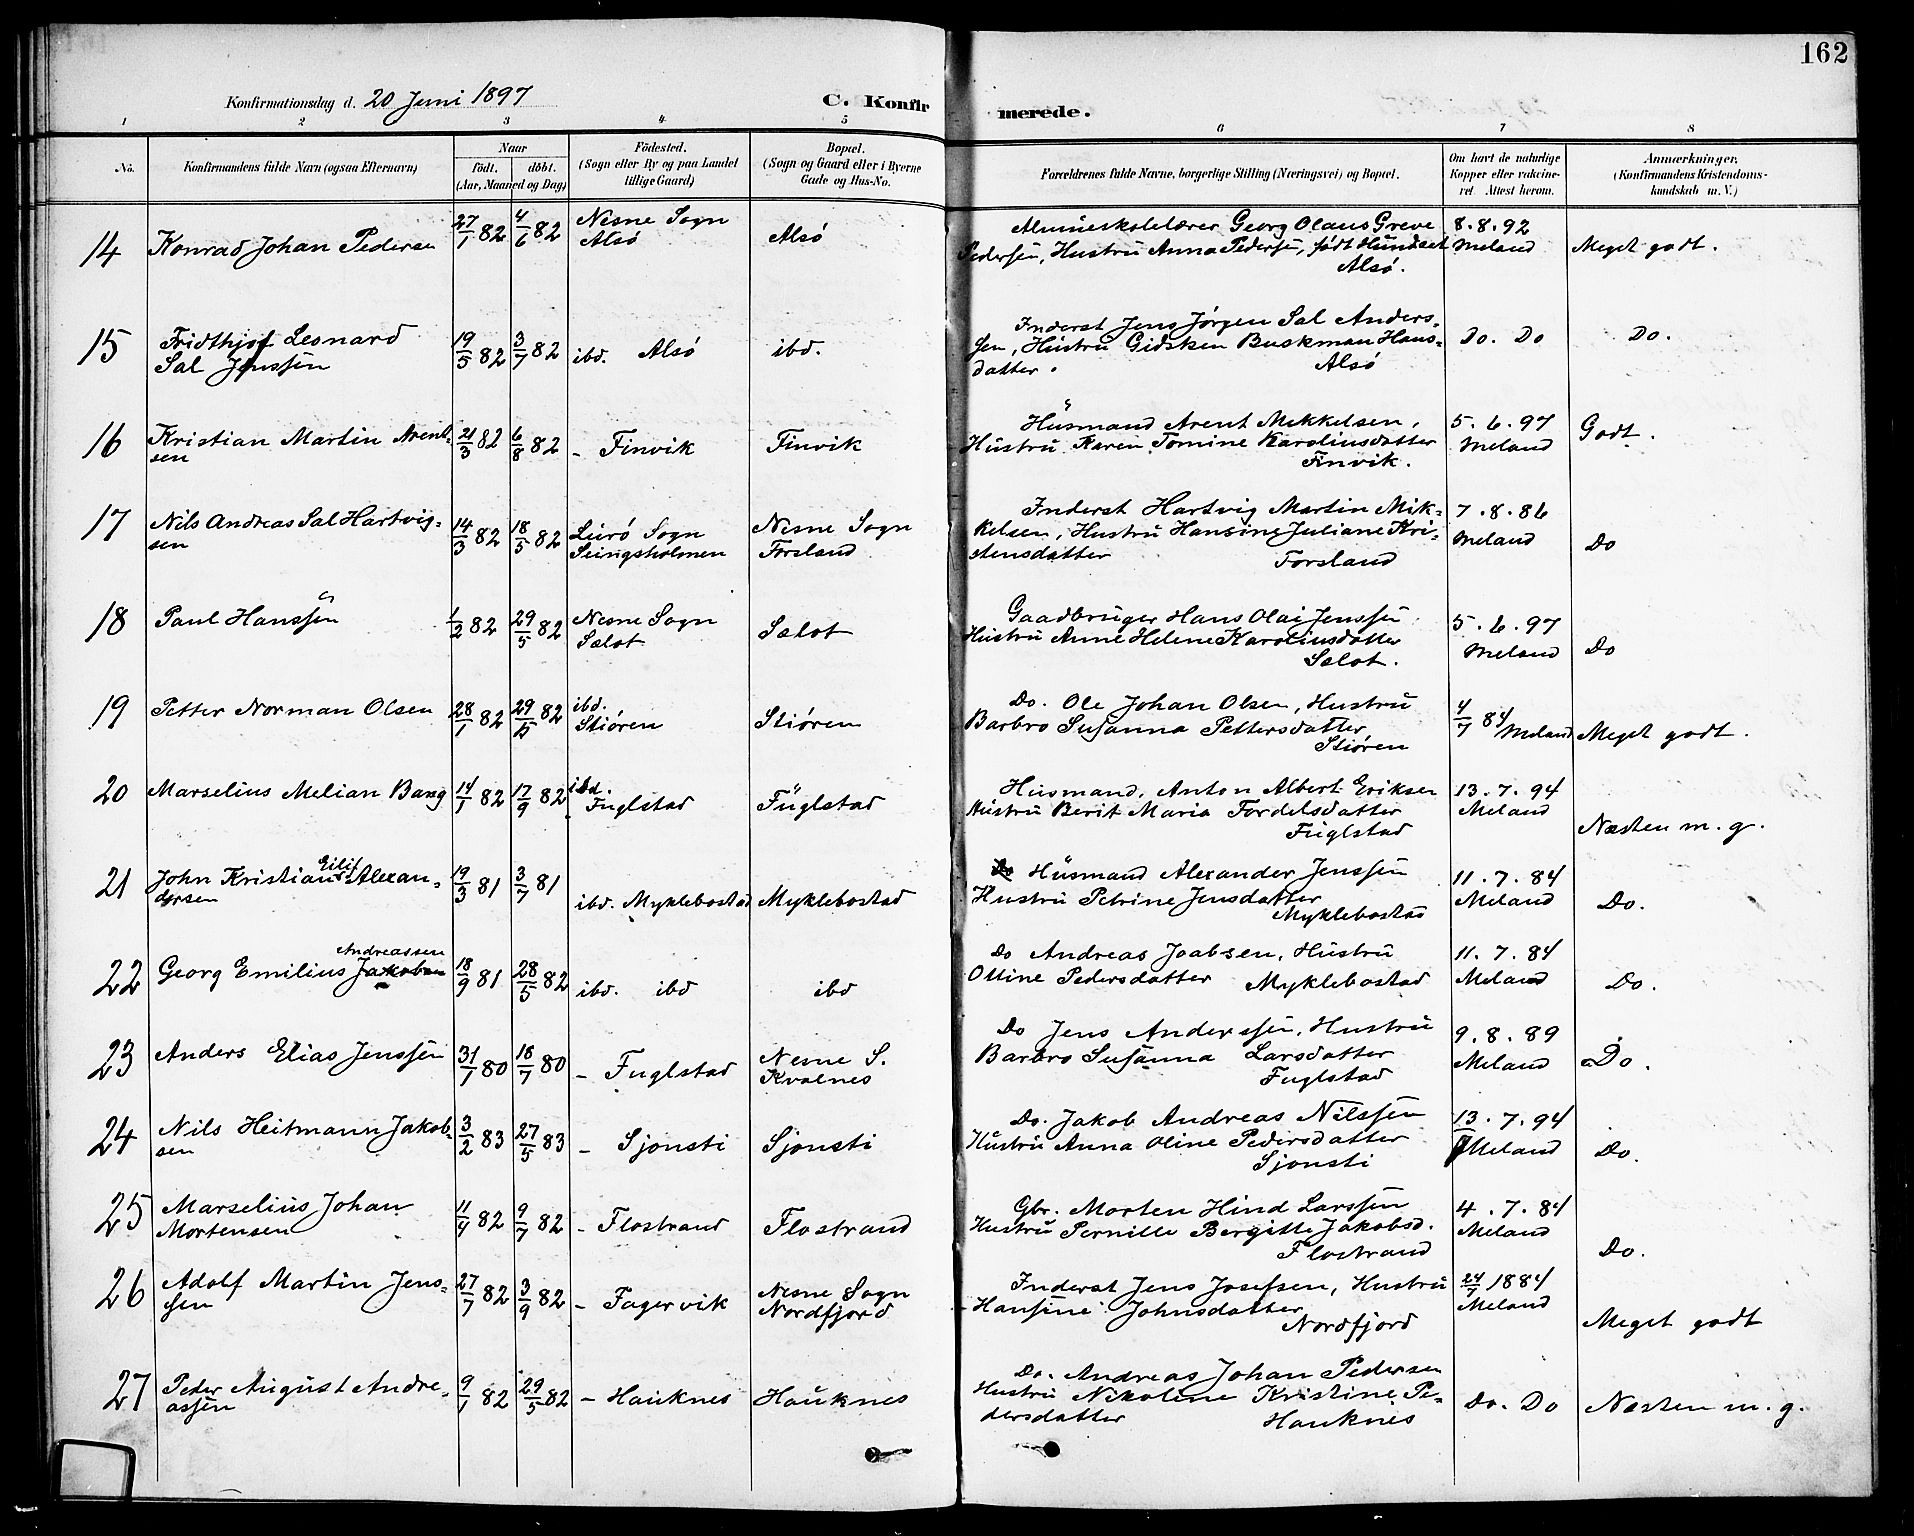 162
Konfirmationsdag d. 20 Juni 1897
C. Konfirmerede.
1 2 3 4 5 6 7 8
No.
Konfirmandens fulde Navn (ogsaa Efternavn)
Naar
födt. döbt.
(Aar, Maaned og Dag)
Födested.
(Sogn eller By og paa Landet
tillige Gaard)
Bopæl.
(Sogn og Gaard eller i Byerne
Gade og Hus-No.
Forældrenes fulde Navne, borgerlige Stilling (Næringsvei) og Bopæl.
Om havt de naturlige
Kopper eller vakcine-
ret. Attest herom.
Anmærkninger.
(Konfirmandens Kristendoms-
kundskab m. V.)
14 Konrad Johan Pedersen 27/1 82 4/6 82 Nesne Sogn
Alsö Alsö
Almueskolelærer Georg Olaus Greve
Pedersen, Hustru Anna Pedersen, født Hundset
Alsö.
8.8.92
Meland
Meget godt.
15 Fridthjof Leonard
Sal Jenssen
19/5 82 3/7 82 ibd. Alsö ibd.
Inderst Jens Jørgen Sal Anders-
sen, Hustru Gidsken Buskman Hans-
datter. Alsö
Do. Do Do.
16 Kristian Martin Arent-
sen
21/3 82 6/8 82 - Finvik Finvik
Husmand Arent Mekkelsen,
Hustru Karen Tomine Karolinsdatter
Finvik.
5.6.97
Meland
Godt.
17 Nils Andreas Sal Hartvig-
sen
14/3 82 18/5 82 Lurö Sogn
Seingsholmen
Nesne Sogn
Forsland
Inderst Hartvig Martin Mik-
kelsen, Hustru Hansine Juliane Kri-
stensdatter Forsland
7.8.86
Meland
Do
18 Paul Hanssen 1/2 82 29/5 82 Nesne Sogn
Selot Selot
Gaadbruger Hans Olai Jenssen
Hustru Anne Helene Karolinsdatter
Selot.
5.6.97
Meland
Do
19 Petter Norman Olsen 28/1 82 29/5 82 ibd.
Stiören Stiören
Do. Ole Johan Olsen, Hustru
Barbro Susanna Pettersdatter
Stiören
4/7 84 Meland
Meget godt.
20 Marselius Melian Bang 14/1 82 17/9 82 ibd.
Fuglstad Fuglstad
Husmand, Anton Albert Eriksen
Hustru Berit Maria Fordelsdatter
Fuglstad
13.7.94
Meland
Næsten m. g.
21 John Kristian Eilif Alexan-
dersen
19/3 81 3/7 81 ibd. Myklebostad Myklebostad
Do Husmand Alexander Jenssen
Hustru Petrine Jensdatter
Myklebostad
11.7.84
Meland
Do.
22 Georg Emilius Jakobsen
Andreassen
18/9 81 28/5 82 ibd. ibd ibd
Do Andreas Joabsen, Hustru
Olline Pedersdatter Myklebostad
11.7.84
Meland
Do.
23 Anders Elias Jenssen 31/1 80 18/7 80 - Fuglstad
Nesne S.
Kvalnes
Do Jens Anderssen, Hustru
Barbro Susanna Larsdatter
Fuglstad
9.8.89
Meland
Do.
24 Nils Heitmann Jakob-
sen
3/2 83 27/5 83 - Sjonsti Sjonsti
Do. Jakob Andreas Nilssen
Hustru Anna Oline Pedersdatter
Sjonsti
13.7.94
Meland
Do.
25 Marselius Johan
Mortensen
11/4 82 9/7 82 - Flostrand Flostrand
Gbr. Morten Hind Larssen
Hustru Pernille Bergitte Jakobsd.
Flostrand
4.7.84
Meland
Do.
26 Adolf Martin Jens-
sen
27/7 82 3/9 82 - Fagervik
Nesne Sogn
Nordfjord
Inderst Jens Josefsen, Hustru
Hansine Johnsdatter
Nordfjord
24/7 1884
Meland
Meget godt
27 Peder August Andre-
assen
9/1 82 29/5 82 - Hauknes Hauknes
Do. Andreas Johan Pedersen
Hustru Nikoline Kristine Pe-
dersdatter Hauknes
Do. Do Næsten m. g.